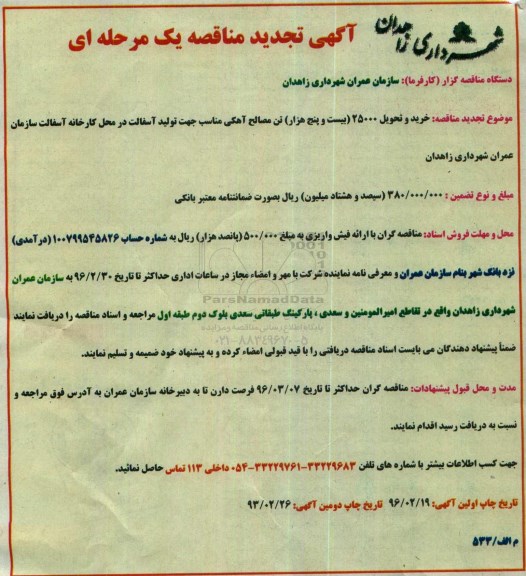 شهرداری زاهدان
آگهی تجدید مناقصه یک مرحله ای
دستگاه مناقصه گزار (کارفرما): سازمان عمران شهرداری زاهدان
موضوع تجدید مناقصه: خرید و تحویل ۲۵۰۰۰ (بیست و پنج هزار) تن مصالح آهکی مناسب جهت تولید آسفالت در محل کارخانه آسفالت سازمان
عمران شهرداری زاهدان
مبلغ و نوع تضمین : ۳۸۰/۰۰۰/۰۰۰ (سیصد و هشتاد میلیون) ریال بصورت ضمانتنامه معتبر بانکی
محل و مهلت فروش اسناد: مناقصه گران با ارائه فیش واریزی به مبلغ ۵۰۰/۰۰۰ (پانصد هزار) ریال به شماره حساب ۱۰۰۷۹۹۵۴۵۸۲۶ (درآمدی)
نزد بانک شهر بنام سازمان عمران و معرفی نامه نماینده شرکت با مهر و امضاء مجاز در ساعات اداری حداکثر تا تاریخ ۹۶/۲/۳۰ به سازمان عمران
شهرداری زاهدان واقع در تقاطع امیرالمومنین و سعدی ، پارکینگ طبقاتی سعدی بلوک دوم طبقه اول مراجعه و اسناد مناقصه را دریافت نمایند
ضمناً پیشنهاد دهندگان می بایست اسناد مناقصه دریافتی را با قید قبولی امضاء کرده و به پیشنهاد خود ضمیمه و تسلیم نمایند.
مدت و محل قبول پیشنهادات: مناقصه گران حداکثر تا تاریخ ۹۶/۰۳/۰۷ فرصت دارن تا به دبیرخانه سازمان عمران به آدرس فوق مراجعه و
نسبت به دریافت رسید اقدام نمایند.
جهت کسب اطلاعات بیشتر با شماره های تلفن ۳۳۲۲۹۶۸۳-۳۳۲۲۹۷۶۱-۰۵۴ داخلی ۱۱۳ تماس حاصل نمائید.
تاریخ چاپ اولین آگهی: ۹۶/۰۲/۱۹ تاریخ چاپ دومین آگهی: ۹۳/۰۲/۲۶
م الف/۵۳۳
ParsNamadData
پایگاه اطلاع رسانی مناقصه و مزایده
۰۲۱-۸۸۳۴۹۶۷۰-۵